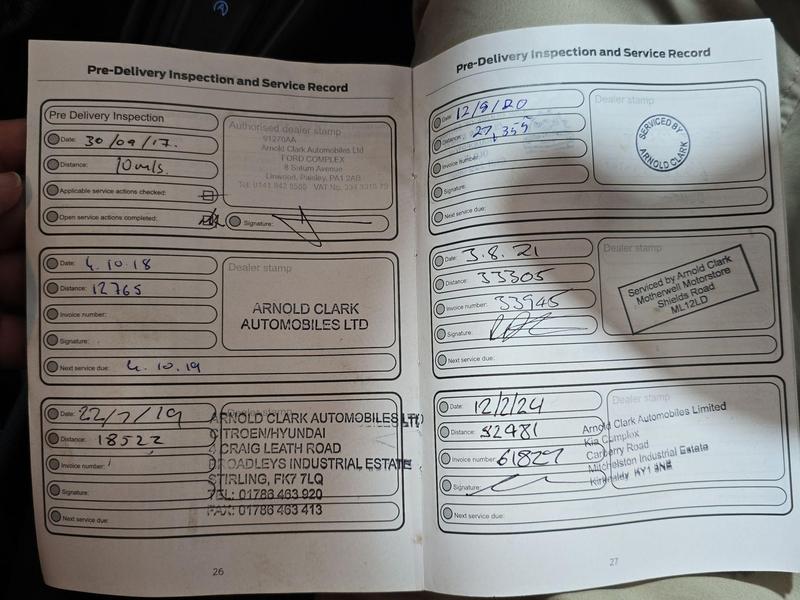 Pre-Delivery Inspection and Service Record
Pre Delivery Inspection
Date: 30/09/17.
Distance: 10 mls.
Applicable service actions checked:
Open service actions completed:
Authorised dealer stamp
91270AA
Arnold Clark Automobiles Ltd
FORD COMPLEX
8 Saturn Avenue
Linwood, Paisley, PA1 2AB
Signature:
Date: 4.10.18
Distance: 12765
Invoice number:
Signature:
Next service due: 4.10.19
Dealer stamp
ARNOLD CLARK
AUTOMOBILES LTD
Date: 22/7/19
Distance: 18522
Invoice number:
Signature:
Next service due:
Dealer stamp
ARNOLD CLARK AUTOMOBILES LTD
CITROEN/HYUNDAI
CRAIG LEATH ROAD
BROADLEYS INDUSTRIAL ESTATE
STIRLING, FK7 7LQ
TEL: 01786 463 920
FAX: 01786 463 413
26
Pre-Delivery Inspection and Service Record
Date: 12/9/20
Distance: 27,355
Invoice number:
Signature:
Next service due:
Dealer stamp
SERVICED BY
ARNOLD CLARK
Date: 3.8.21
Distance: 33305
Invoice number: 33945
Signature:
Next service due:
Dealer stamp
Serviced by Arnold Clark
Motherwell Motorstore
Shields Road
ML12LD
Date: 12/2/24
Distance: 52481
Invoice number: 61827
Signature:
Next service due:
Dealer stamp
Arnold Clark Automobiles Limited
Kia Complex
Carberry Road
Mitchelston Industrial Estate
Kirkcaldy KY1 3NE
27